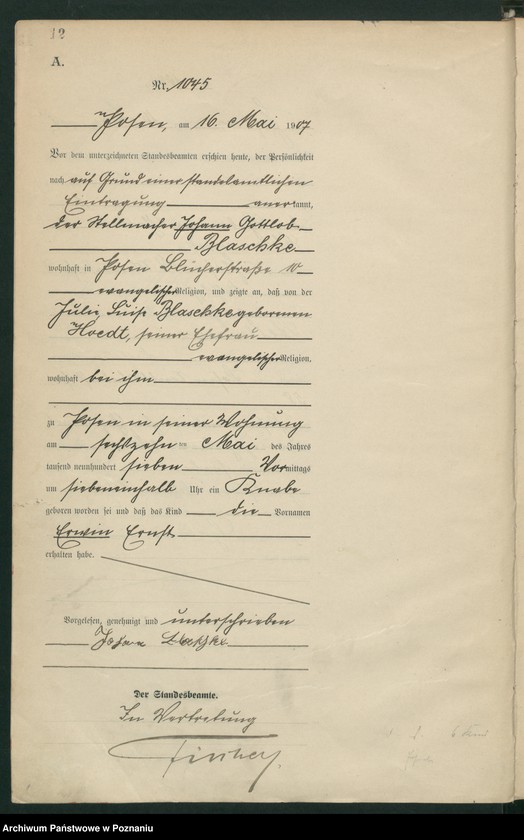 12
A.
Nr. 1045
Posen, am 16. Mai 1907
Vor dem unterzeichneten Standesbeamten erschien heute, der Persönlichkeit
nach auf Grund einer standesamtlichen
Eintragung anerkannt,
der Stellmacher Johann Gottlob
Blaschke
wohnhaft in Posen Blücherstraße 10
evangelischer Religion, und zeigte an, daß von der
Julie Luise Blaschke geborenen
Hoedt, seiner Ehefrau
evangelischer Religion,
wohnhaft bei ihm
zu Posen in seiner Wohnung
am sechszehnten Mai des Jahres
tausend neunhundert sieben Vormittags
um siebeneinhalb Uhr ein Knabe
geboren worden sei und daß das Kind die Vornamen
Erwin Ernst
erhalten habe.
Vorgelesen, genehmigt und unterschrieben
Der Standesbeamte.
In Vertretung
Archiwum Państwowe w Poznaniu